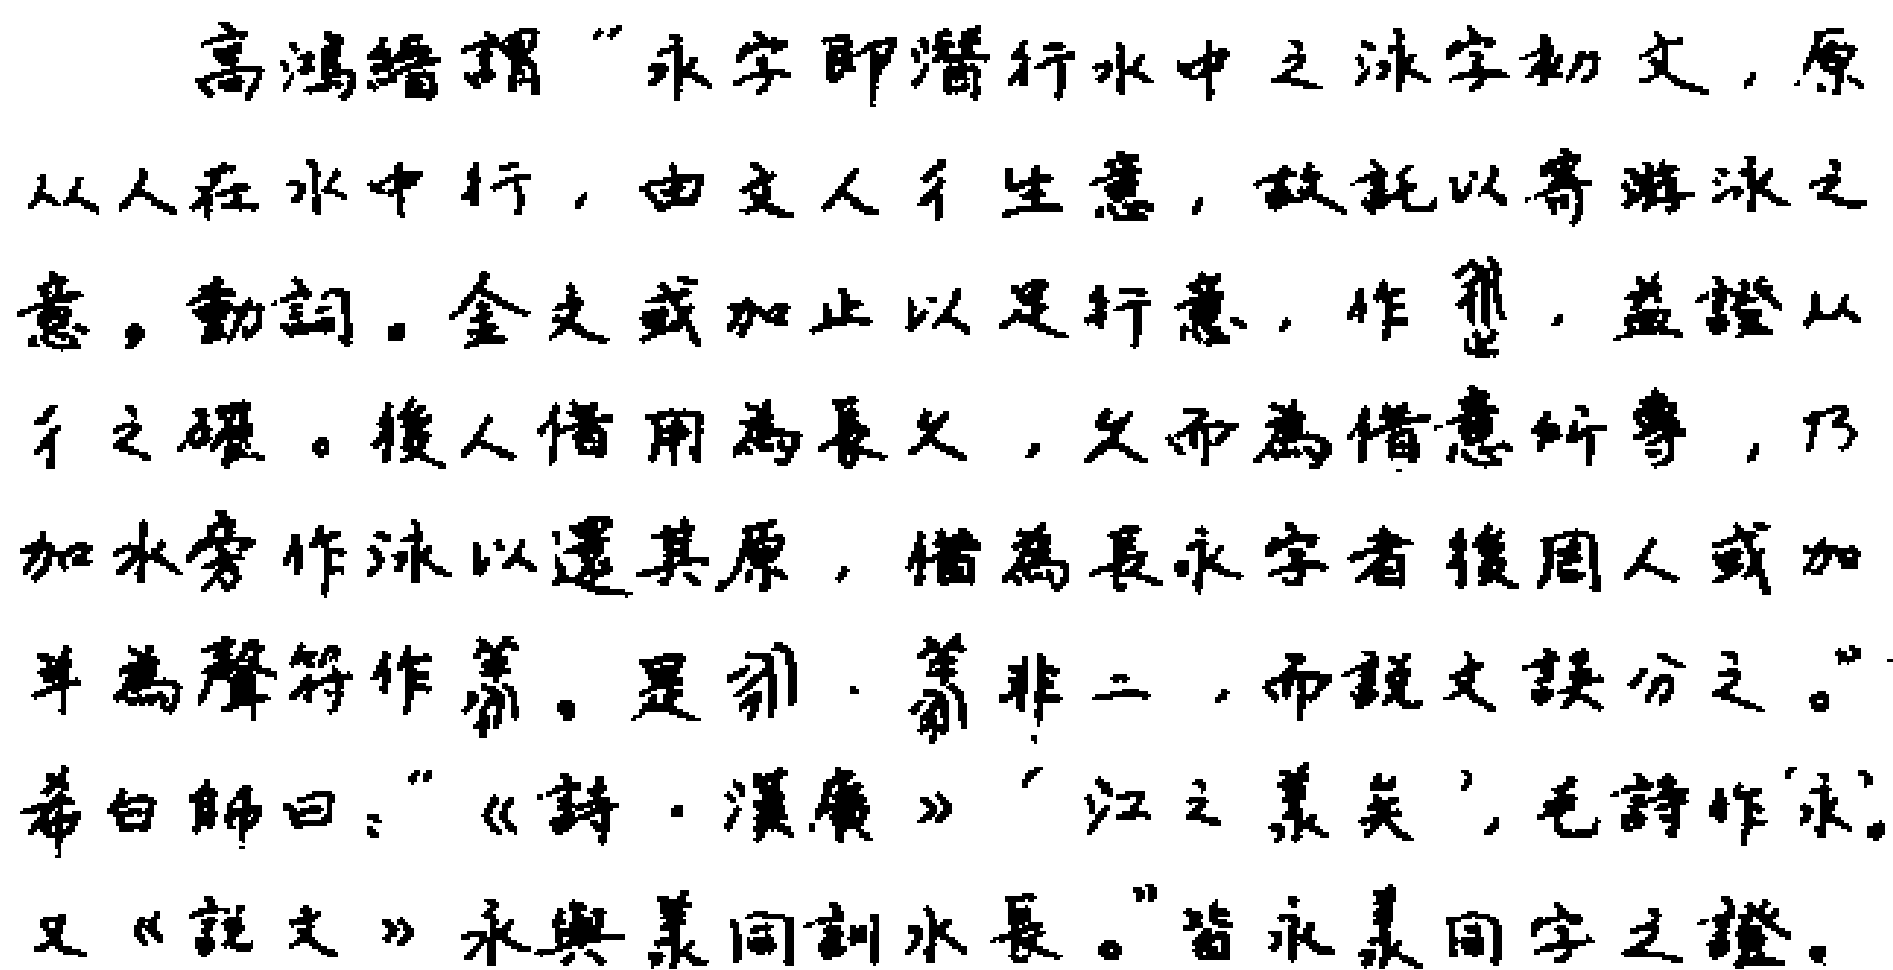 高鴻縉謂“永字即潛行水中之泳字初文，原
从人在水中行，由文人彳生意，故託以寄游泳之
意，動詞。金文或加止以足行意，作，益證从
彳之確。後人借用為長久，久而為借意所專，乃
加水旁作泳以還其原，借為長永字者後周人或加
羊為聲符作羕。是永．羕非二，而説文誤分之。”
希白師曰：“《詩·漢廣》‘江之羕矣’，毛詩作‘永’。
又《説文》永與羕同訓水長。”皆永羕同字之證。